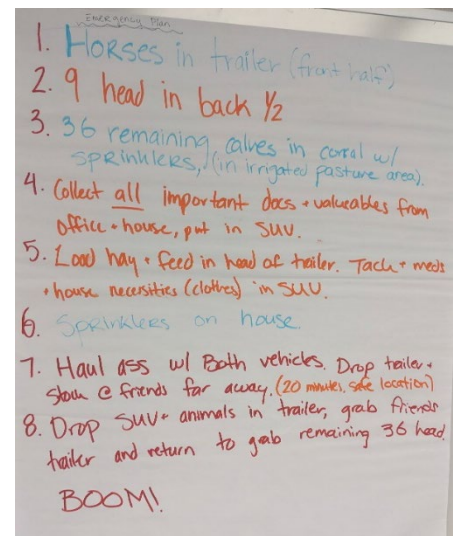 Emergency Plan
1. HORSES in trailer (front half)
2. 9 head in back ½
3. 36 remaining calves in corral w/
SPRINKLERS, (in irrigated pasture area).
4. Collect all important docs + valueables from
office + house, put in SUV.
5. Load hay + feed in head of trailer. Tack + meds
+ house necessities (clothes) in SUV.
6. SPRINKLERS on house
7. Haul ass w/ Both vehicles. Drop trailer +
@ friends far away. (20 minutes, safe location)
8. Drop SUV + animals in trailer, grab friends
trailer and return to grab remaining 36 head.
BOOM!